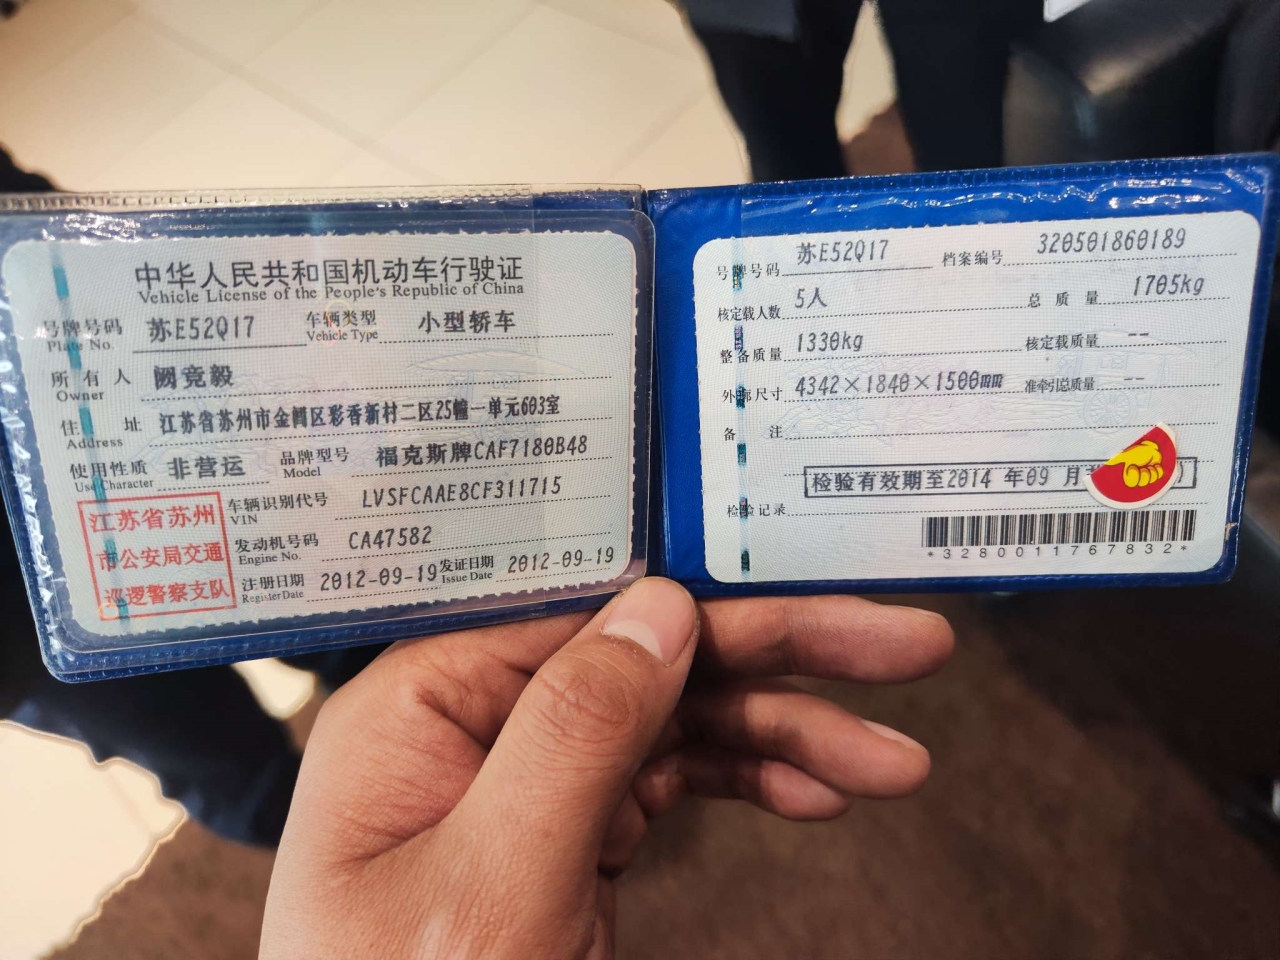 中华人民共和国机动车行驶证
Vehicle License of the People's Republic of China
号牌号码 苏E52Q17 车辆类型 小型轿车
Plate No. Vehicle Type
所有人 阚竞毅
Owner
住址 江苏省苏州市金阊区彩香新村二区25幢一单元603室
Address
使用性质 非营运 品牌型号 福克斯牌CAF7180B48
Use Character Model
江苏省苏州
市公安局交通
巡逻警察支队
车辆识别代号 LVSFCAAE8CF311715
VIN
发动机号码 CA47582
Engine No.
注册日期 2012-09-19 发证日期 2012-09-19
Register Date Issue Date
号牌号码 苏E52Q17 档案编号 320501860189
核定载人数 5人 总质量 1705kg
整备质量 1330kg 核定载质量 --
外部尺寸 4342×1840×1500mm 准牵引总质量 --
备注
检验有效期至2014 年09 月
检验记录
*3280011767832*